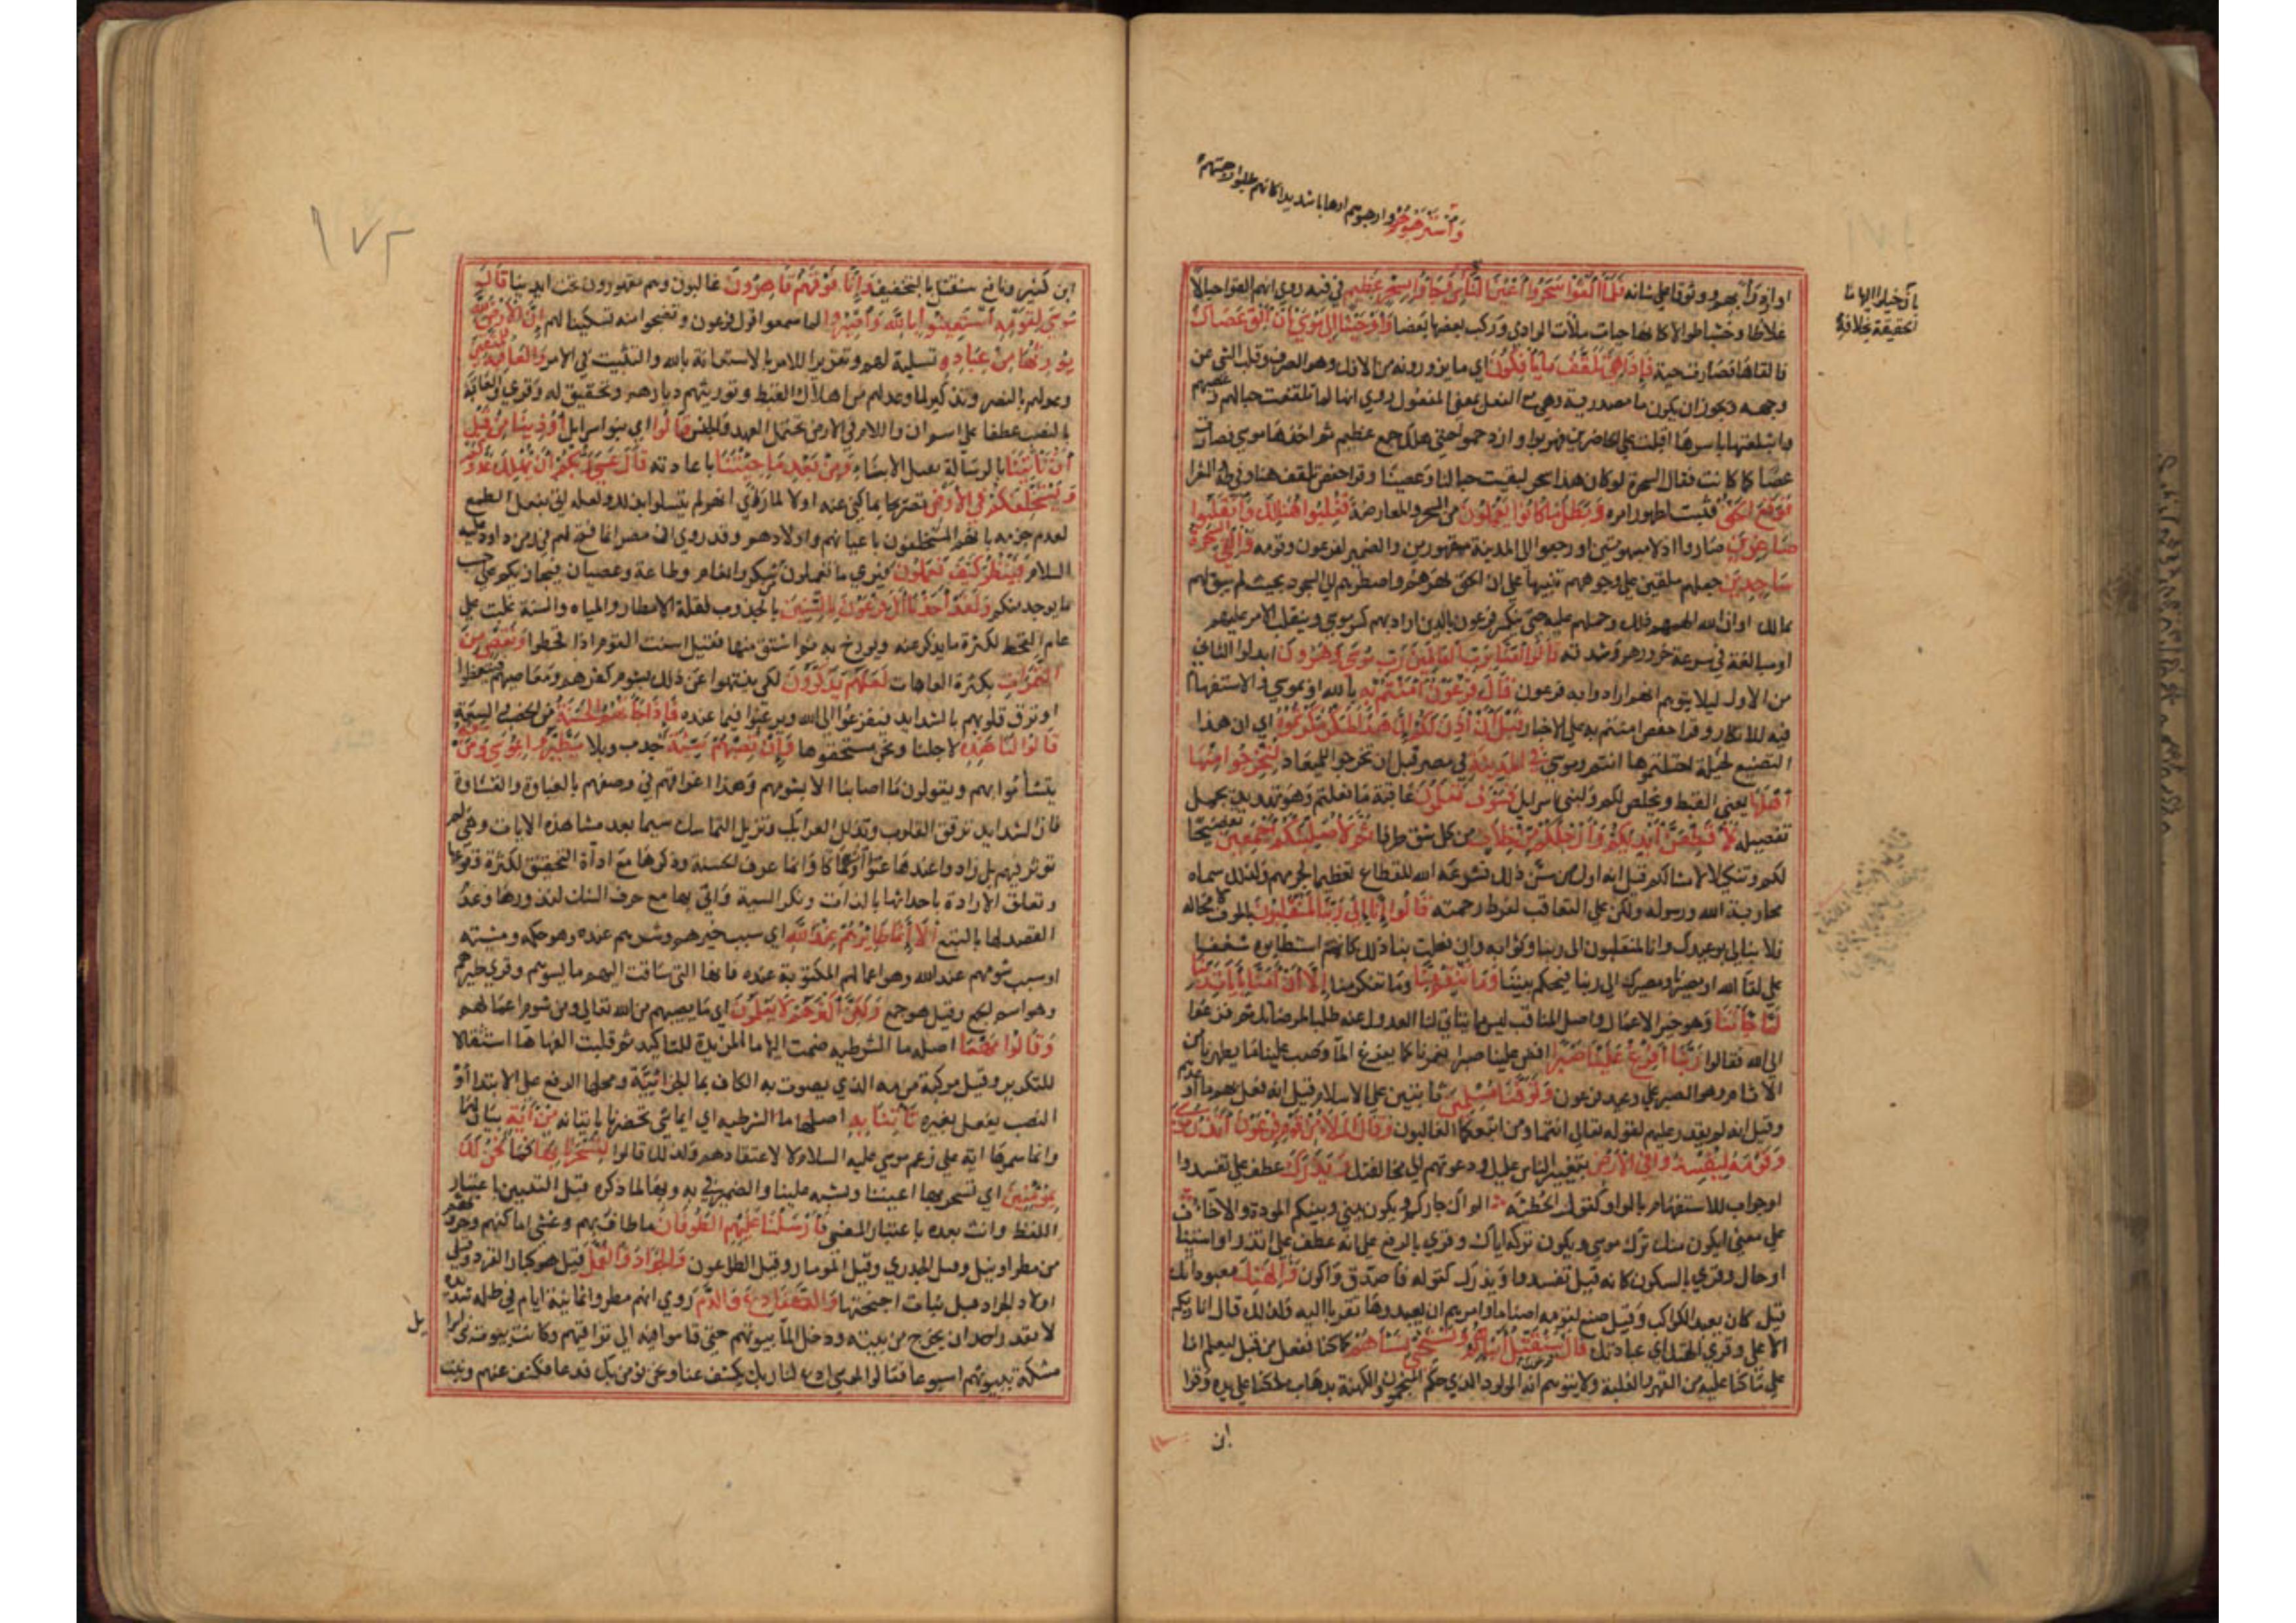 واسترهبوهم وارهبوهم ارهابا شديدا كانهم طلبوا رهبتهم
بان خيلوا اليها ما
الحقيقة بخلافه
او ازدراء بهم ووثوقا على شانه فلما القوا سحروا اعين الناس وجاؤا بسحر عظيم في فنه روي انهم القوا حبالا
غلاظا وخشبا طوالا كانها حيات ملأت الوادي وركب بعضها بعضا واوحينا الى موسى ان الق عصاك
فالقاها فصارت حية فاذا هي تلقف ما يافكون اي ما يزورونه من الافك وهو الصرف وقلب الشئ عن
وجهه ويجوز ان يكون ما مصدرية وهي مع الفعل بمعنى المفعول روي انها لما تلقفت حبالهم وعصيهم
وابتلعتها باسرها اقبلت على الحاضرين فهربوا وازدحموا حتى هلك جمع عظيم ثم اخذها موسى فصارت
عصا كما كانت فقال السحرة لو كان هذا سحر لبقيت حبالنا وعصينا وقرا حفص تلقف هنا وفي طه والشعرا
فوقع الحق فثبت لظهور امره وبطل ما كانوا يعملون من السحر والمعارضة فغلبوا هنالك وانقلبوا
صاغرين صاروا اذلا مبهوتين او رجعوا الى المدينة مقهورين والضمير لفرعون وقومه والقي السحرة
ساجدين جعلهم ملقين على وجوههم تنبيها على ان الحق بهرهم واضطرهم الى السجود بحيث لم يبق لهم
تمالك او ان الله الهمهم ذلك وحملهم عليه حتى ينكسر فرعون بالذين اراد بهم كسر موسى وينقلب الامر عليهم
او مبالغة في سرعة خرورهم وشدته قالوا امنا برب العالمين رب موسى وهرون ابدلوا الثاني
من الاول ليلا يتوهم انهم ارادوا به فرعون قال فرعون امنتم به بالله او بموسى والاستفهام
فيه للانكار وقرا حفص امنتم به على الاخبار قبل ان اذن لكم ان هذا لمكر مكرتموه اي ان هذا
الصنيع لحيلة احتلتموها انتم وموسى في المدينة في مصر قبل ان تخرجوا للميعاد لتخرجوا منها
اهلها يعني القبط وتخلص لكم ولبني اسرايل فسوف تعلمون عاقبة ما فعلتم وهو تهديد مجمل
تفصيله لاقطعن ايديكم وارجلكم من خلاف من كل شق طرفا ثم لاصلبنكم اجمعين تفضيحا
لكم وتنكيلا لامثالكم قيل انه اول من سن ذلك فشرعه الله للقطاع تعظيما لجرمهم ولذلك سماه
محاربة الله ورسوله ولكن على التعاقب لفرط رحمته قالوا انا الى ربنا لمنقلبون بالموت لا محالة
فلا نبالي بوعيدك وانا لمنقلبون الى ربنا وثوابه وان فعلت بنا ذلك كانهم استطابوه شغفا
على لقا الله او مصيرنا ومصيرك الى ربنا فيحكم بيننا وما تنقم منا وما تنكر منا الا ان امنا بايات ربنا
لما جائتنا وهو خير الاعمال واصل المناقب ليس مما يتاتى لنا العدول عنه طلبا لمرضاتك ثم فزعوا
الى الله فقالوا ربنا افرغ علينا صبرا افض علينا صبرا يغمرنا كما يفرغ الماء او صب علينا ما يطهرنا من
الاثام وهو الصبر على وعيد فرعون وتوفنا مسلمين ثابتين على الاسلام قيل انه فعل بهم ما اوعدهم به
وقيل انه لم يقدر عليهم لقوله تعالى انتما ومن اتبعكما الغالبون وقال الملأ من قوم فرعون اتذر موسى
وقومه ليفسدوا في الارض بتغيير الناس عليك ودعوتهم الى مخالفتك ويذرك عطف على يفسدوا
او جواب للاستفهام بالواو كقول الحطيئة الم اك جاركم ويكون بيني وبينكم المودة والاخاء
على معنى ايكون منك ترك موسى ويكون تركه اياك وقري بالرفع على انه عطف على اتذر او استيناف
او حال وقري بالسكون كانه قيل يفسدوا ويذرك كقوله فاصدق واكون والهتك معبوداتك
قيل كان يعبد الكواكب وقيل صنع لقومه اصناما وامرهم ان يعبدوها تقربا اليه ولذلك قال انا ربكم
الاعلى وقري الهتك اي عبادتك قال سنقتل ابناءهم ونستحيي نساءهم كما كنا نفعل من قبل ليعلم انا
على ما كنا عليه من القهر والغلبة ولا يتوهم انه المولود الذي حكم المنجمون والكهنة بذهاب ملكنا على يده وقرا
ابن
١٧٢
ابن كثير ونافع سنقتل بالتخفيف وانا فوقهم قاهرون غالبون وهم مقهورون تحت ايدينا قال
موسى لقومه استعينوا بالله واصبروا لما سمعوا قول فرعون وتضجروا منه تسكينا لهم ان الارض لله
يورثها من عباده تسلية لهم وتقريرا للامر بالاستعانة بالله والتثبت في الامر والعاقبة للمتقين
وعد لهم بالنصر وتذكير لما وعدهم من اهلاك القبط وتوريثهم ديارهم وتحقيق له وقري والعاقبة
بالنصب عطفا على اسم ان واللام في الارض تحتمل العهد والجنس قالوا اي بنو اسرايل اوذينا من قبل
ان تاتينا بالرسالة بقتل الابناء ومن بعد ما جئتنا باعادته قال عسى ربكم ان يهلك عدوكم
ويستخلفكم في الارض تصريحا بما كنى عنه اولا لما راى انهم لم يتسلوا بذلك ولعله اتى بفعل الطمع
لعدم جزمه بانهم المستخلفون باعيانهم او اولادهم وقد روي ان مصر انما فتح لهم في زمن داود عليه
السلام فينظر كيف تعملون فيرى ما تعملون من شكر وكفران وطاعة وعصيان فيجازيكم على حسب
ما يوجد منكم ولقد اخذنا ال فرعون بالسنين بالجدوب لقلة الامطار والمياه والسنة غلبت على
عام القحط لكثرة ما يذكر عنه ويورخ به ثم اشتق منها فقيل اسنت القوم اذا قحطوا ونقص من
الثمرات بكثرة العاهات لعلهم يذكرون لكي يتنبهوا على ان ذلك بشوم كفرهم ومعاصيهم فيتعظوا
او ترق قلوبهم بالشدايد فيفزعوا الى الله ويرغبوا فيما عنده فاذا جاءتهم الحسنة من الخصب والسعة
قالوا لنا هذه لاجلنا ونحن مستحقوها وان تصبهم سيئة جدب وبلا يطيروا بموسى ومن معه
يتشأموا بهم ويقولون ما اصابنا الا بشومهم وهذا اغراق في وصفهم بالغباوة والقساوة
فان الشدايد ترقق القلوب وتذلل العرايك وتزيل التماسك سيما بعد مشاهدة الايات وهي لم
توثر فيهم بل زادوا عندها عتوا وانهماكا وانما عرف الحسنة وذكرها مع اداة التحقيق لكثرة وقوعها
وتعلق الارادة باحداثها بالذات ونكر السية واتى بها مع حرف الشك لندورها وعدم
القصد لها بالتبع الا انما طائرهم عند الله اي سبب خيرهم وشرهم عنده وهو حكمه ومشيته
او سبب شومهم عند الله وهو اعمالهم المكتوبة عنده فانها التي ساقت اليهم ما يسوهم وقري طيرهم
وهو اسم لجمع وقيل هو جمع ولكن اكثرهم لا يعلمون اي ما يصيبهم من الله تعالى ومن شوم اعمالهم
وقالوا مهما اصله ما الشرطية ضمت اليها ما المزيدة للتاكيد ثم قلبت الفها ها استثقالا
للتكرير وقيل مركبة من مه الذي يصوت به الكاف وما الجزائية ومحلها الرفع على الابتدا او
النصب بفعل يفسره تأتنا به اصلها ما الشرطيه اي ايما شي تحضرنا تاتنا به من آية بيان لمهما
وانما سموها اية على زعم موسى عليه السلام لا لاعتقادهم ولذلك قالوا لتسحرنا بها فما نحن لك
بمؤمنين اي لتسحر بها اعيننا وتشبه علينا والضمير في به وبها لما ذكره قبل التبيين باعتبار
اللفظ وانث بعده باعتبار المعنى فارسلنا عليهم الطوفان ما طاف بهم وغشي اماكنهم وحروثهم
من مطر او سيل وقيل الجدري وقيل الموتان وقيل الطاعون والجراد والقمل قيل هو كبار القردان وقيل
اولاد الجراد قبل نبات اجنحتها والضفادع والدم روي انهم مطروا ثمانية ايام في ظلمة شديدة
لا يقدر احد ان يخرج من بيته ودخل الماء بيوتهم حتى قاموا فيه الى تراقيهم وكانت بيوت بني اسرا
مشتبكة ببيوتهم اسبوعا فقالوا لموسى ادع لنا ربك يكشف عنا ونحن نومن بك فدعا فكشف عنهم ونبت
يل